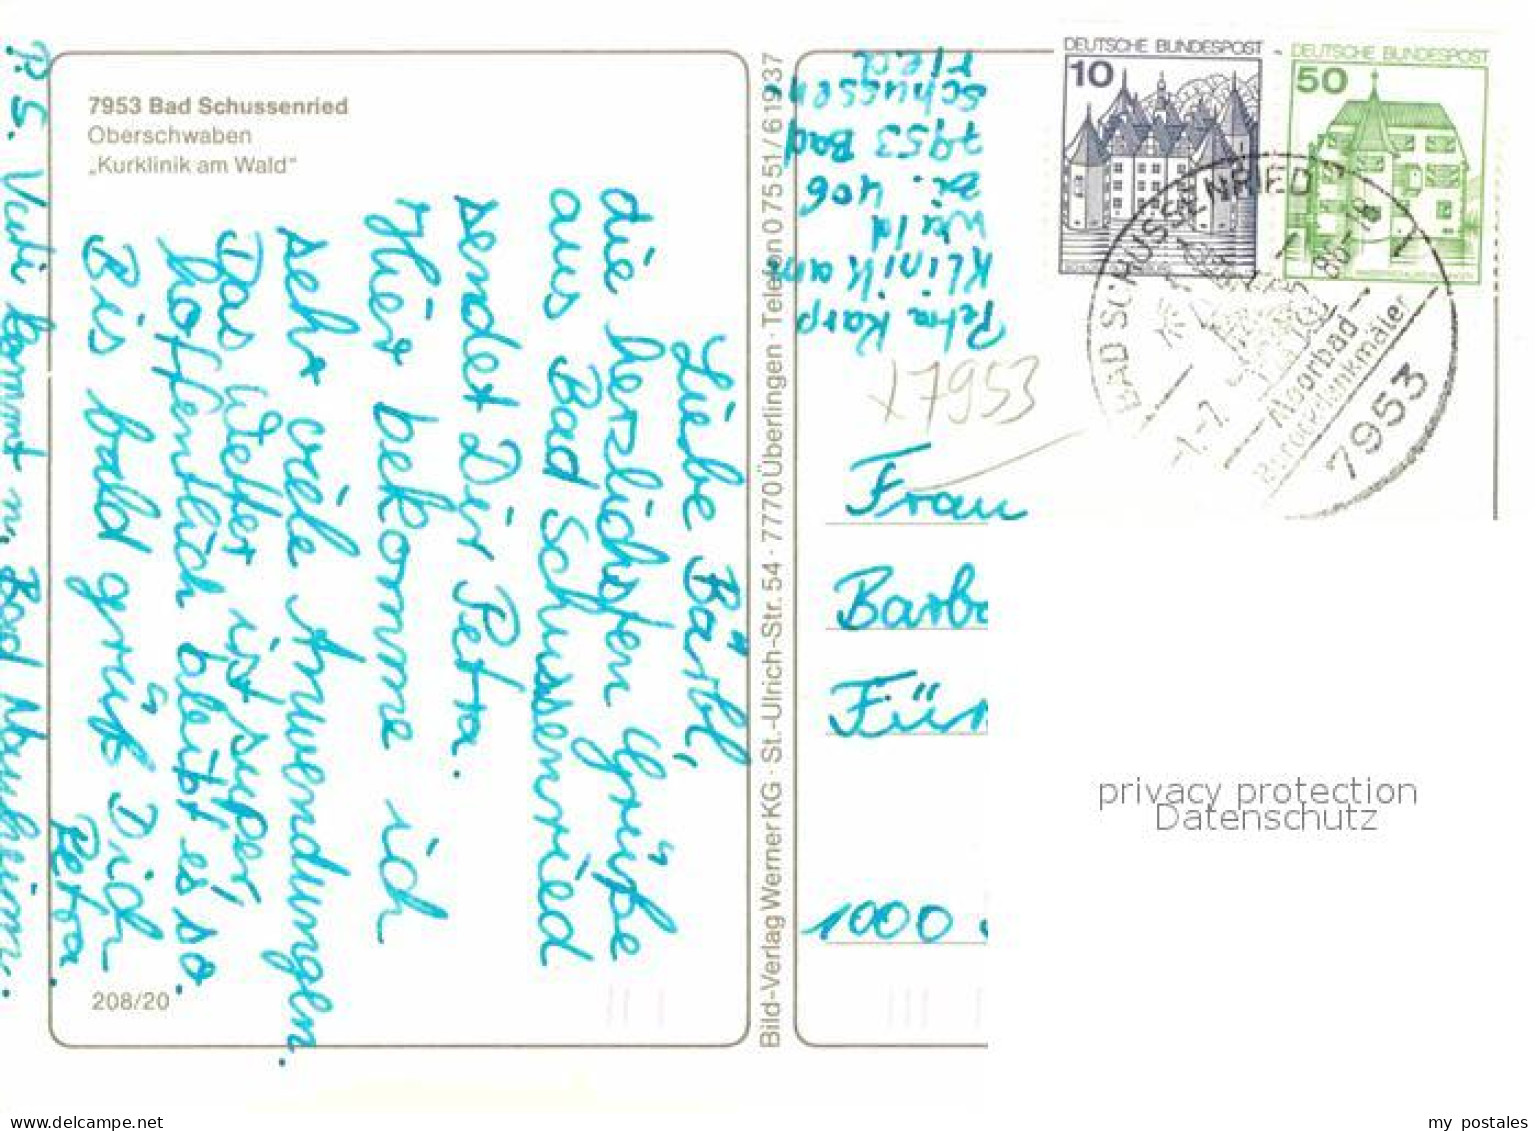 7953 Bad Schussenried
Oberschwaben
„Kurklinik am Wald"
Liebe Bärbl,
die herzlichsten Grüße
aus Bad Schussenried
sendet Dir Petra.
Hier bekomme ich
sehr viele Anwendungen.
Das Wetter ist super,
hoffentlich bleibt es so.
Bis bald grüßt Dich
Petra.
P.S. Vuti kommt n. Bad Nauheim.
208/20
Bild-Verlag Werner KG · St.-Ulrich-Str. 54 · 7770 Überlingen · Telefon 0 75 51/6 19 37
Petra Karp
Klinik am
Wald
Zi. 406
7953 Bad
Schussen
ried
x7953
Frau
Barb
Für
1000
DEUTSCHE BUNDESPOST
10
DEUTSCHE BUNDESPOST
50
BAD SCHUSSENRIED 1
-1.-7. 86-18
Moorbad
Barockdenkmäler
7953
privacy protection
Datenschutz
my postales